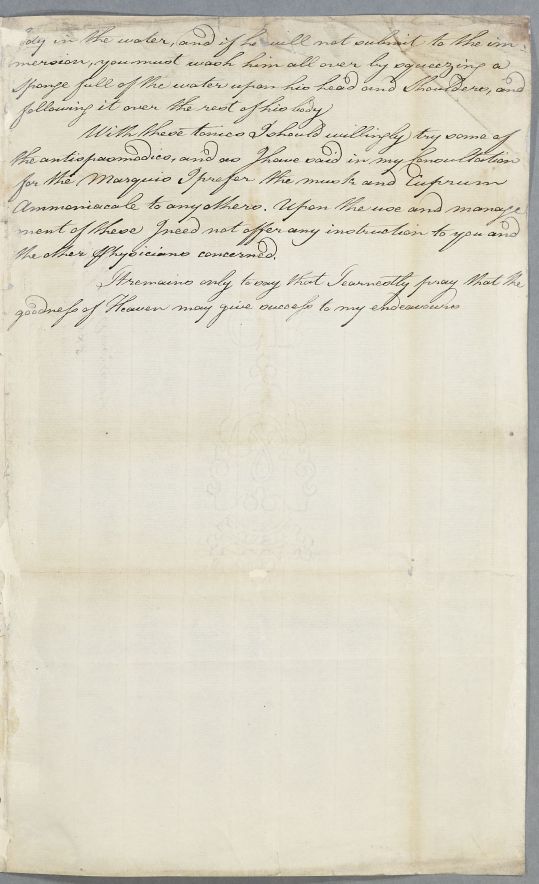 body in the water, and if he will not submit to the im-
mersion, you must wash him all over by squeezing a
sponge full of the water upon his head and Shoulders, and
following it over the rest of his body
With these tonics I should willingly try some of
the antispasmodics, and as I have said in my Consultation
for the Marquis I prefer the musk and Cuprum
Ammoniacale to any others. Upon the use and manage
ment of these I need not offer any instruction to you and
the other Physicians concerned.
It remains only to say that I earnestly pray that the
goodness of Heaven may give success to my endeavours